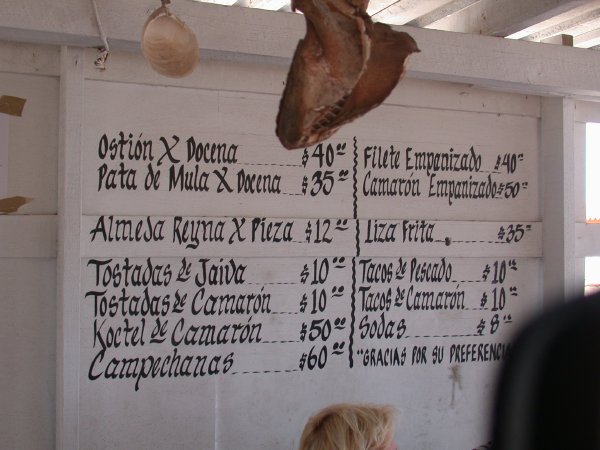 Ostión X Docena $40.00
Pata de Mula X Docena $35.00
Almeda Reyna X Pieza $12.00
Tostadas de Jaiva $10.00
Tostadas de Camarón $10.00
Koctel de Camarón $50.00
Campechanas $60.00
Filete Empanizado $40.00
Camarón Empanizado $50.00
Liza Frita $35.00
Tacos de Pescado $10.00
Tacos de Camarón $10.00
Sodas $8.00
"GRACIAS POR SU PREFERENCIA